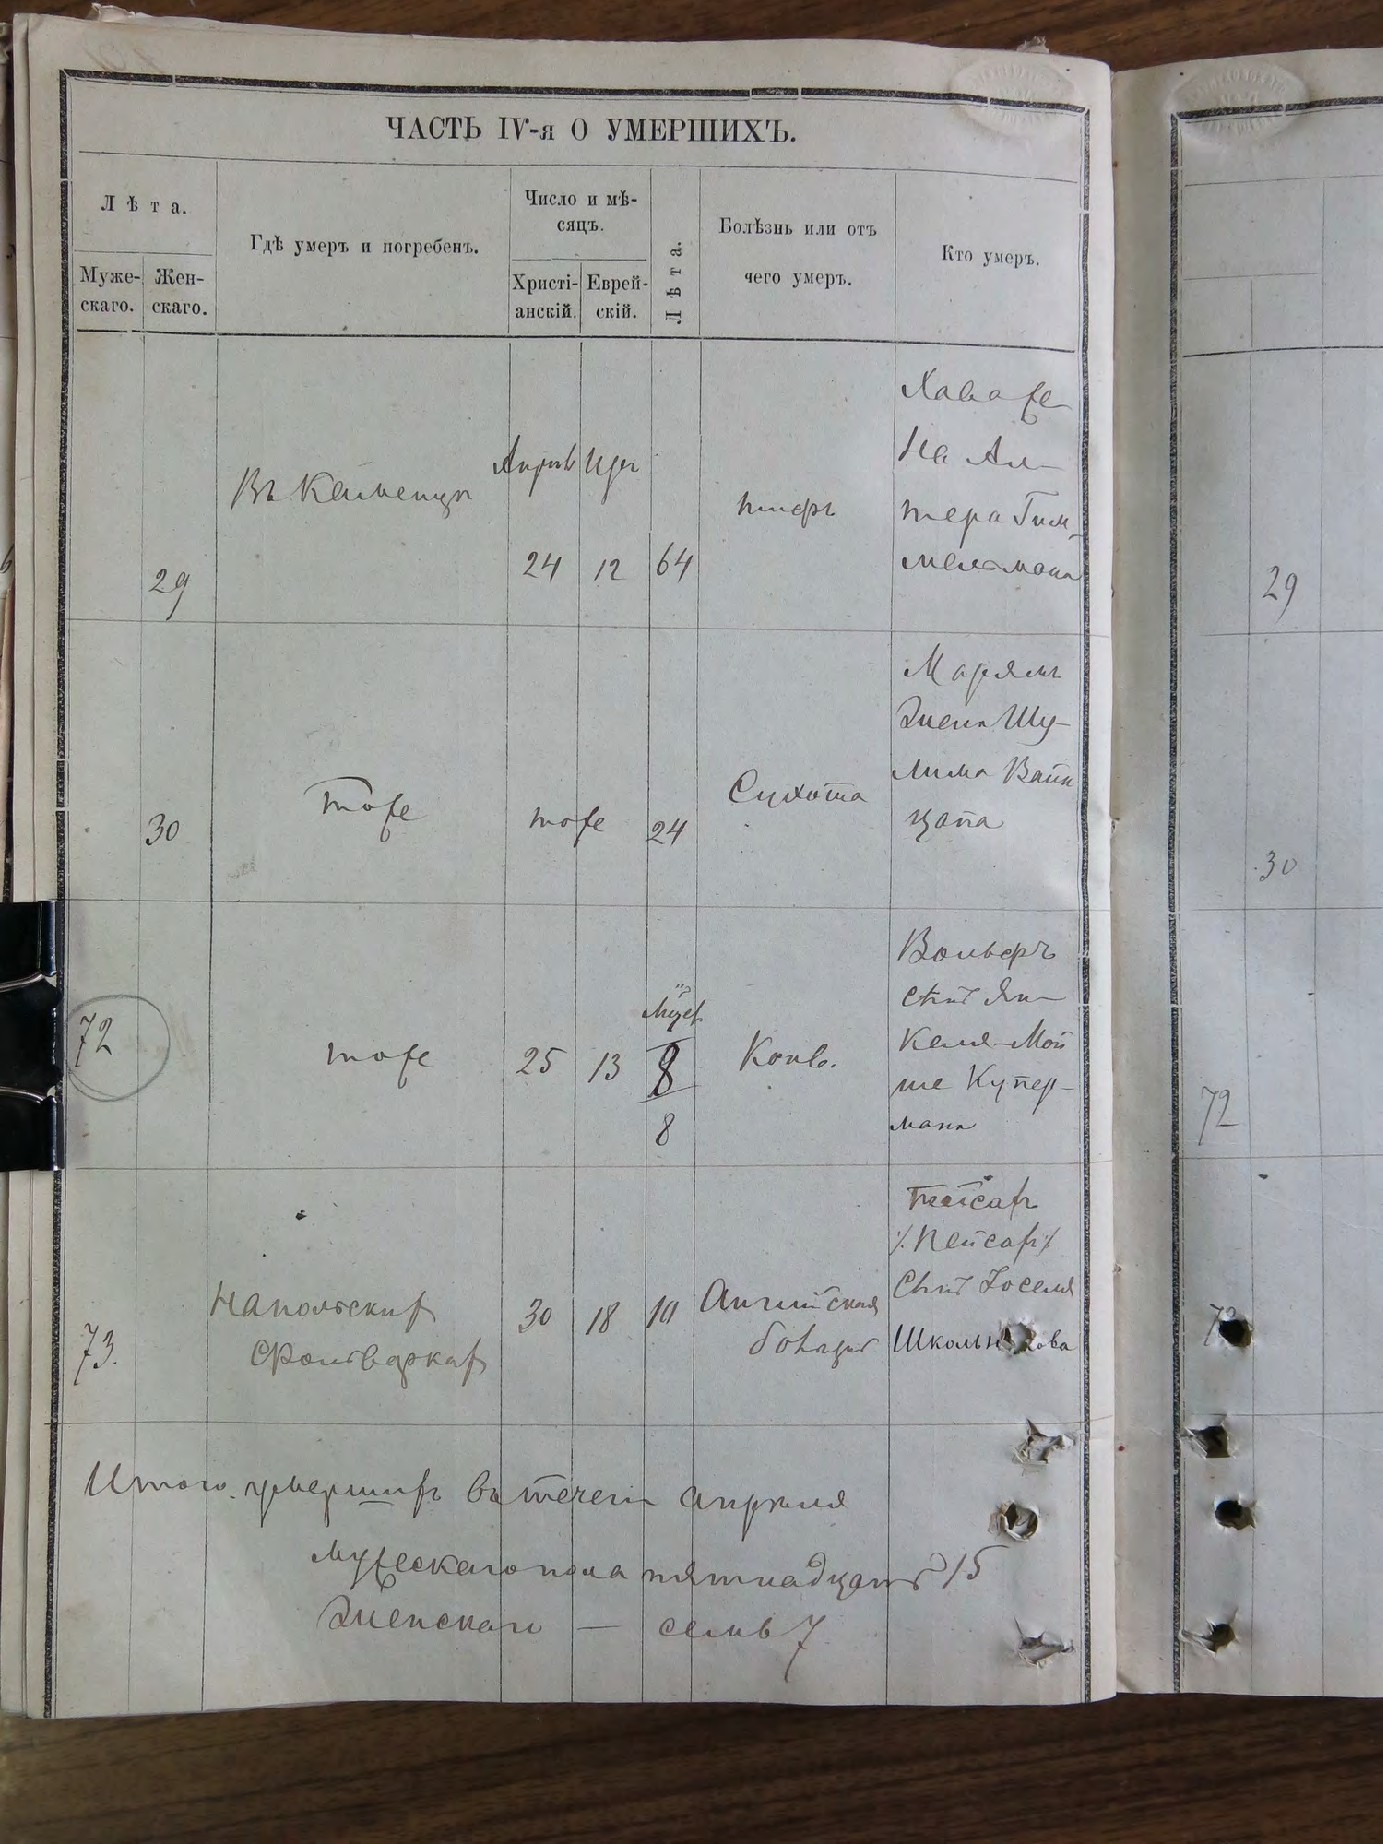 ЧАСТЬ IV-я О УМЕРШИХЪ.
Лѣта.
Муже-
скаго.
Жен-
скаго.
Гдѣ умеръ и погребенъ.
Число и мѣ-
сяцъ.
Христі-
анскій.
Еврей-
скій.
Лѣта.
Болѣзнь или отъ
чего умеръ.
Кто умеръ.
29
Въ Каменцѣ
Апрѣль
24
12
64
тифъ
Хава же
на Ал-
тера Гим
мельмана
30
тоже
тоже
24
Сухота
Маріямъ
жена Шу-
лима Вайн
цапа
72
тоже
25
13
8
8
Вольфъ
сынъ Ян-
келя Мой
ше Купер-
мана
73.
На польскихъ
фольваркахъ
30
18
10
Английская
болѣзнь
Пейсахъ
/.Пейсахъ/.
Сынъ Іоселя
Итого умершихъ въ течени апрѣля
Мужескаго пола пятнадцать 15
Женскаго — семь 7
29
30
72
73